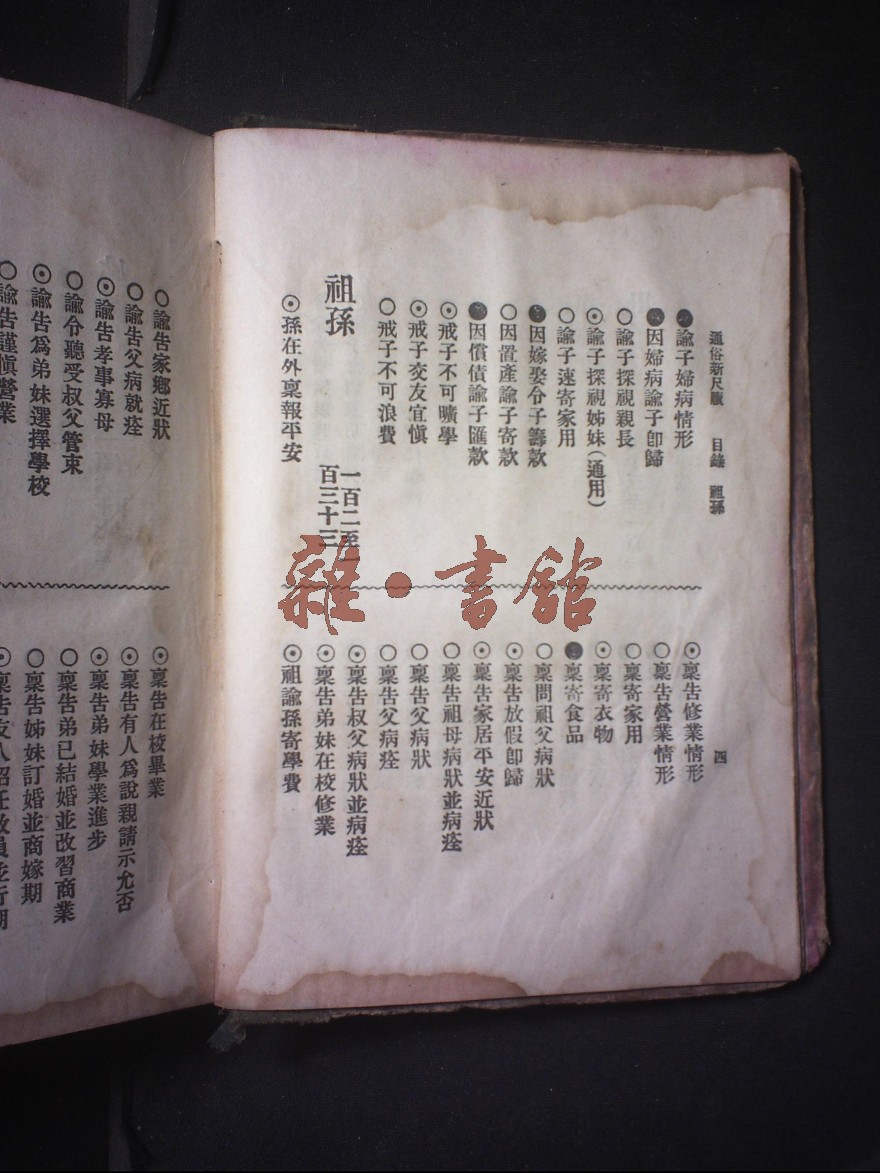 通俗新尺牘　目錄　祖孫
四
諭子婦病情形
因婦病諭子卽歸
○諭子探視親長
⊙諭子探視姊妹(通用)
○諭子速寄家用
因嫁娶令子籌款
○因置產諭子寄款
因償債諭子匯款
⊙戒子不可曠學
⊙戒子交友宜愼
○戒子不可浪費
祖孫
一百二至一
百三十三
⊙孫在外稟報平安
⊙稟告修業情形
○稟告營業情形
○稟寄家用
⊙稟寄衣物
稟寄食品
○稟問祖父病狀
⊙稟告放假卽歸
⊙稟告家居平安近狀
○稟告祖母病狀並病痊
○稟告父病狀
○稟告父病痊
⊙稟告叔父病狀並病痊
⊙稟告弟妹在校修業
⊙祖諭孫寄學費
○諭告家鄉近狀
○諭告父病就痊
⊙諭告孝事寡母
○諭令聽受叔父管束
⊙諭告爲弟妹選擇學校
○諭告謹愼營業
⊙稟告在校畢業
⊙稟告有人爲說親請示允否
⊙稟告弟妹學業進步
○稟告弟已結婚並改習商業
○稟告姊妹訂婚並商嫁期
⊙稟告友人紹任教員並行期
雜·書館